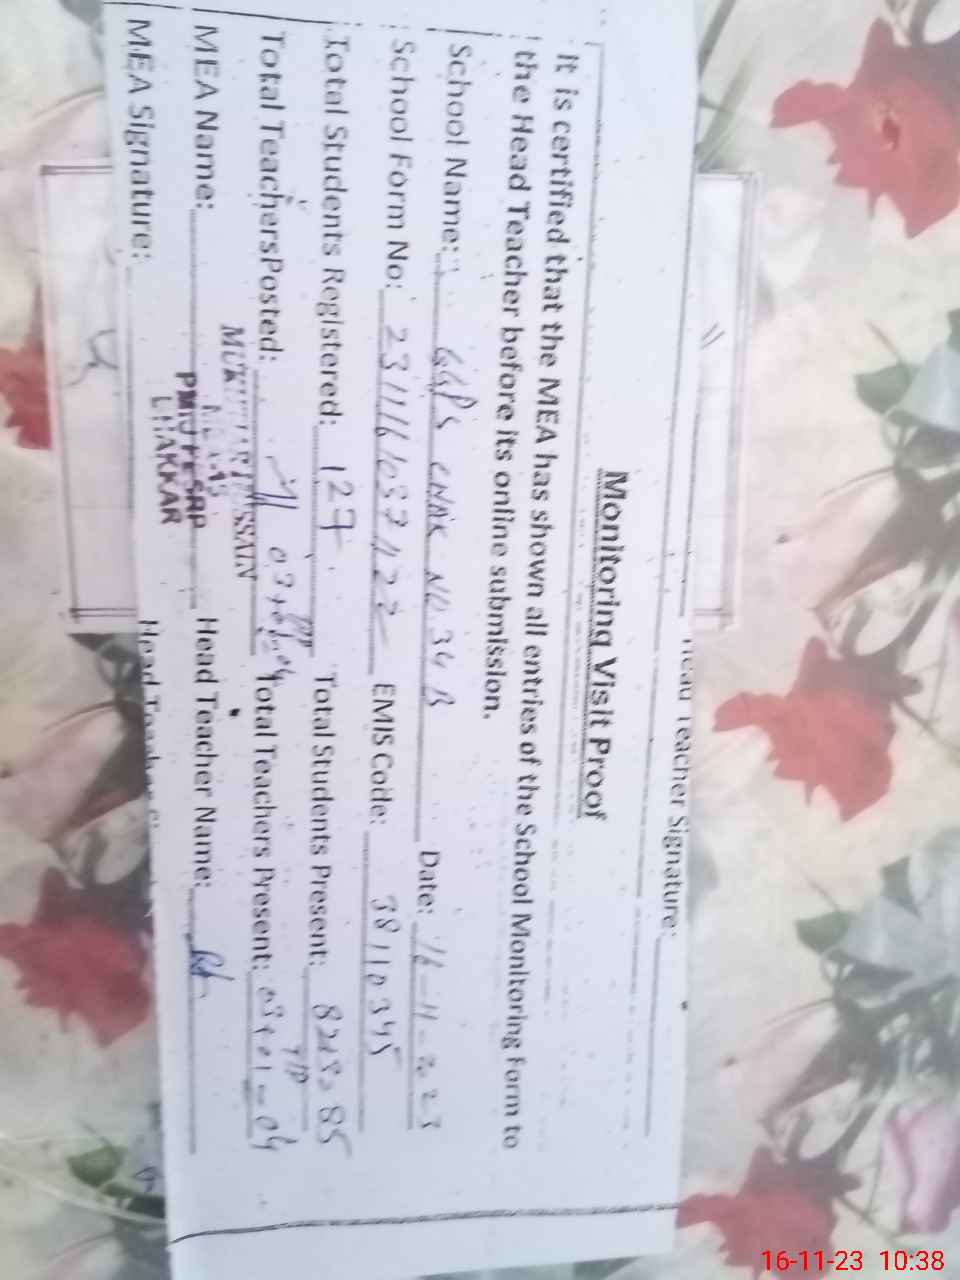 Head Teacher Signature:
Monitoring Visit Proof
It is certified that the MEA has shown all entries of the School Monitoring Form to
the Head Teacher before its online submission.
School Name: GGPS CHAK NO 34 B Date: 16-11-2023
School Form No: EMIS Code: 38110345
Total Students Registered: 127 Total Students Present: 85
Total Teachers Posted: 03+01=04 Total Teachers Present: 03+01=04
MEA Name: Head Teacher Name:
MEA Signature:
MUKHTAR HUSSAIN
PMIU PESRP
BHAKKAR
16-11-23 10:38